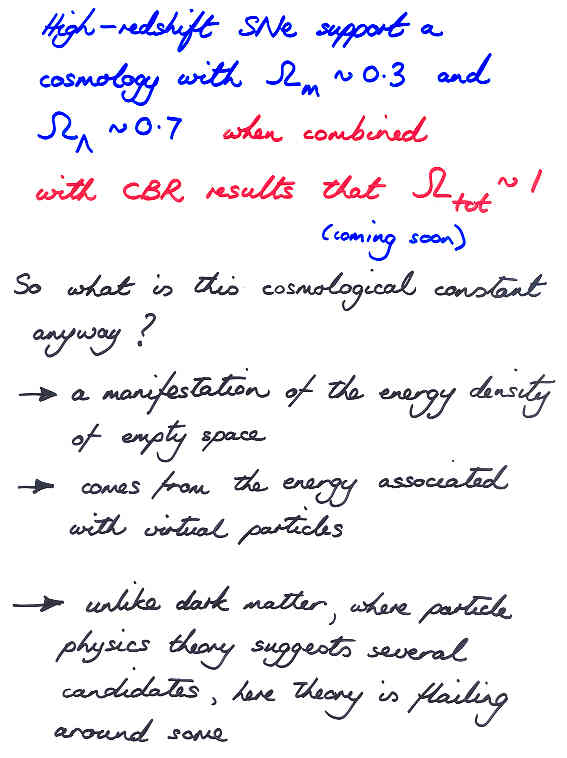 High-redshift SNe support a
cosmology with Ωm ~ 0.3 and
ΩΛ ~ 0.7 when combined
with CBR results that Ωtot ~ 1
(coming soon)
So what is this cosmological constant
anyway?
→ a manifestation of the energy density
of empty space
→ comes from the energy associated
with virtual particles
→ unlike dark matter, where particle
physics theory suggests several
candidates, here theory is flailing
around some